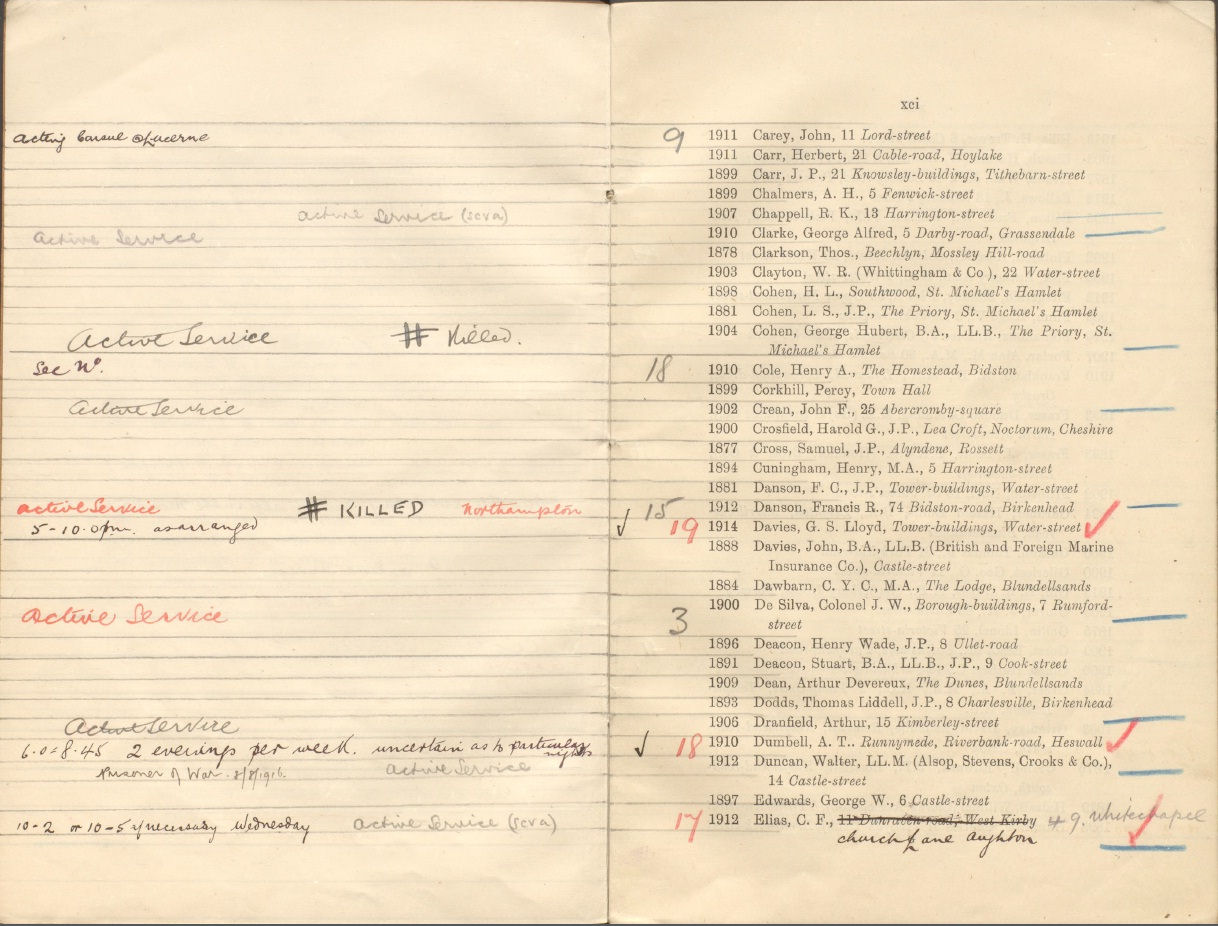 acting Consul @ Lucerne
Active Service (scva)
Active Service
Active Service # Killed.
See Wº.
Active Service
active Service # KILLED Northampton
5-10.0pm. as arranged
Active Service
Active Service
6.0=8.45 2 evenings per week. uncertain as to particular nights
Prisoner of War. 8/8/1916. Active Service
10-2 or 10-5 if necessary Wednesday Active Service (scva)
xci
9 1911 Carey, John, 11 Lord-street
1911 Carr, Herbert, 21 Cable-road, Hoylake
1899 Carr, J. P., 21 Knowsley-buildings, Tithebarn-street
1899 Chalmers, A. H., 5 Fenwick-street
1907 Chappell, R. K., 13 Harrington-street
1910 Clarke, George Alfred, 5 Darby-road, Grassendale
1878 Clarkson, Thos., Beechlyn, Mossley Hill-road
1903 Clayton, W. R. (Whittingham & Co ), 22 Water-street
1898 Cohen, H. L., Southwood, St. Michael's Hamlet
1881 Cohen, L. S., J.P., The Priory, St. Michael's Hamlet
1904 Cohen, George Hubert, B.A., LL.B., The Priory, St.
Michael's Hamlet
18 1910 Cole, Henry A., The Homestead, Bidston
1899 Corkhill, Percy, Town Hall
1902 Crean, John F., 25 Abercromby-square
1900 Crosfield, Harold G., J.P., Lea Croft, Noctorum, Cheshire
1877 Cross, Samuel, J.P., Alyndene, Rossett
1894 Cuningham, Henry, M.A., 5 Harrington-street
1881 Danson, F. C., J.P., Tower-buildings, Water-street
15 1912 Danson, Francis R., 74 Bidston-road, Birkenhead
✓ 19 1914 Davies, G. S. Lloyd, Tower-buildings, Water-street ✓
1888 Davies, John, B.A., LL.B. (British and Foreign Marine
Insurance Co.), Castle-street
1884 Dawbarn, C. Y. C., M.A., The Lodge, Blundellsands
3 1900 De Silva, Colonel J. W., Borough-buildings, 7 Rumford-
street
1896 Deacon, Henry Wade, J.P., 8 Ullet-road
1891 Deacon, Stuart, B.A., LL.B., J.P., 9 Cook-street
1909 Dean, Arthur Devereux, The Dunes, Blundellsands
1893 Dodds, Thomas Liddell, J.P., 8 Charlesville, Birkenhead
1906 Dranfield, Arthur, 15 Kimberley-street
✓ 18 1910 Dumbell, A. T.. Runnymede, Riverbank-road, Heswall ✓
1912 Duncan, Walter, LL.M. (Alsop, Stevens, Crooks & Co.),
14 Castle-street
1897 Edwards, George W., 6 Castle-street
17 1912 Elias, C. F., 11 Dunraven-road, West Kirby + 9. Whitechapel ✓
church Lane Aughton